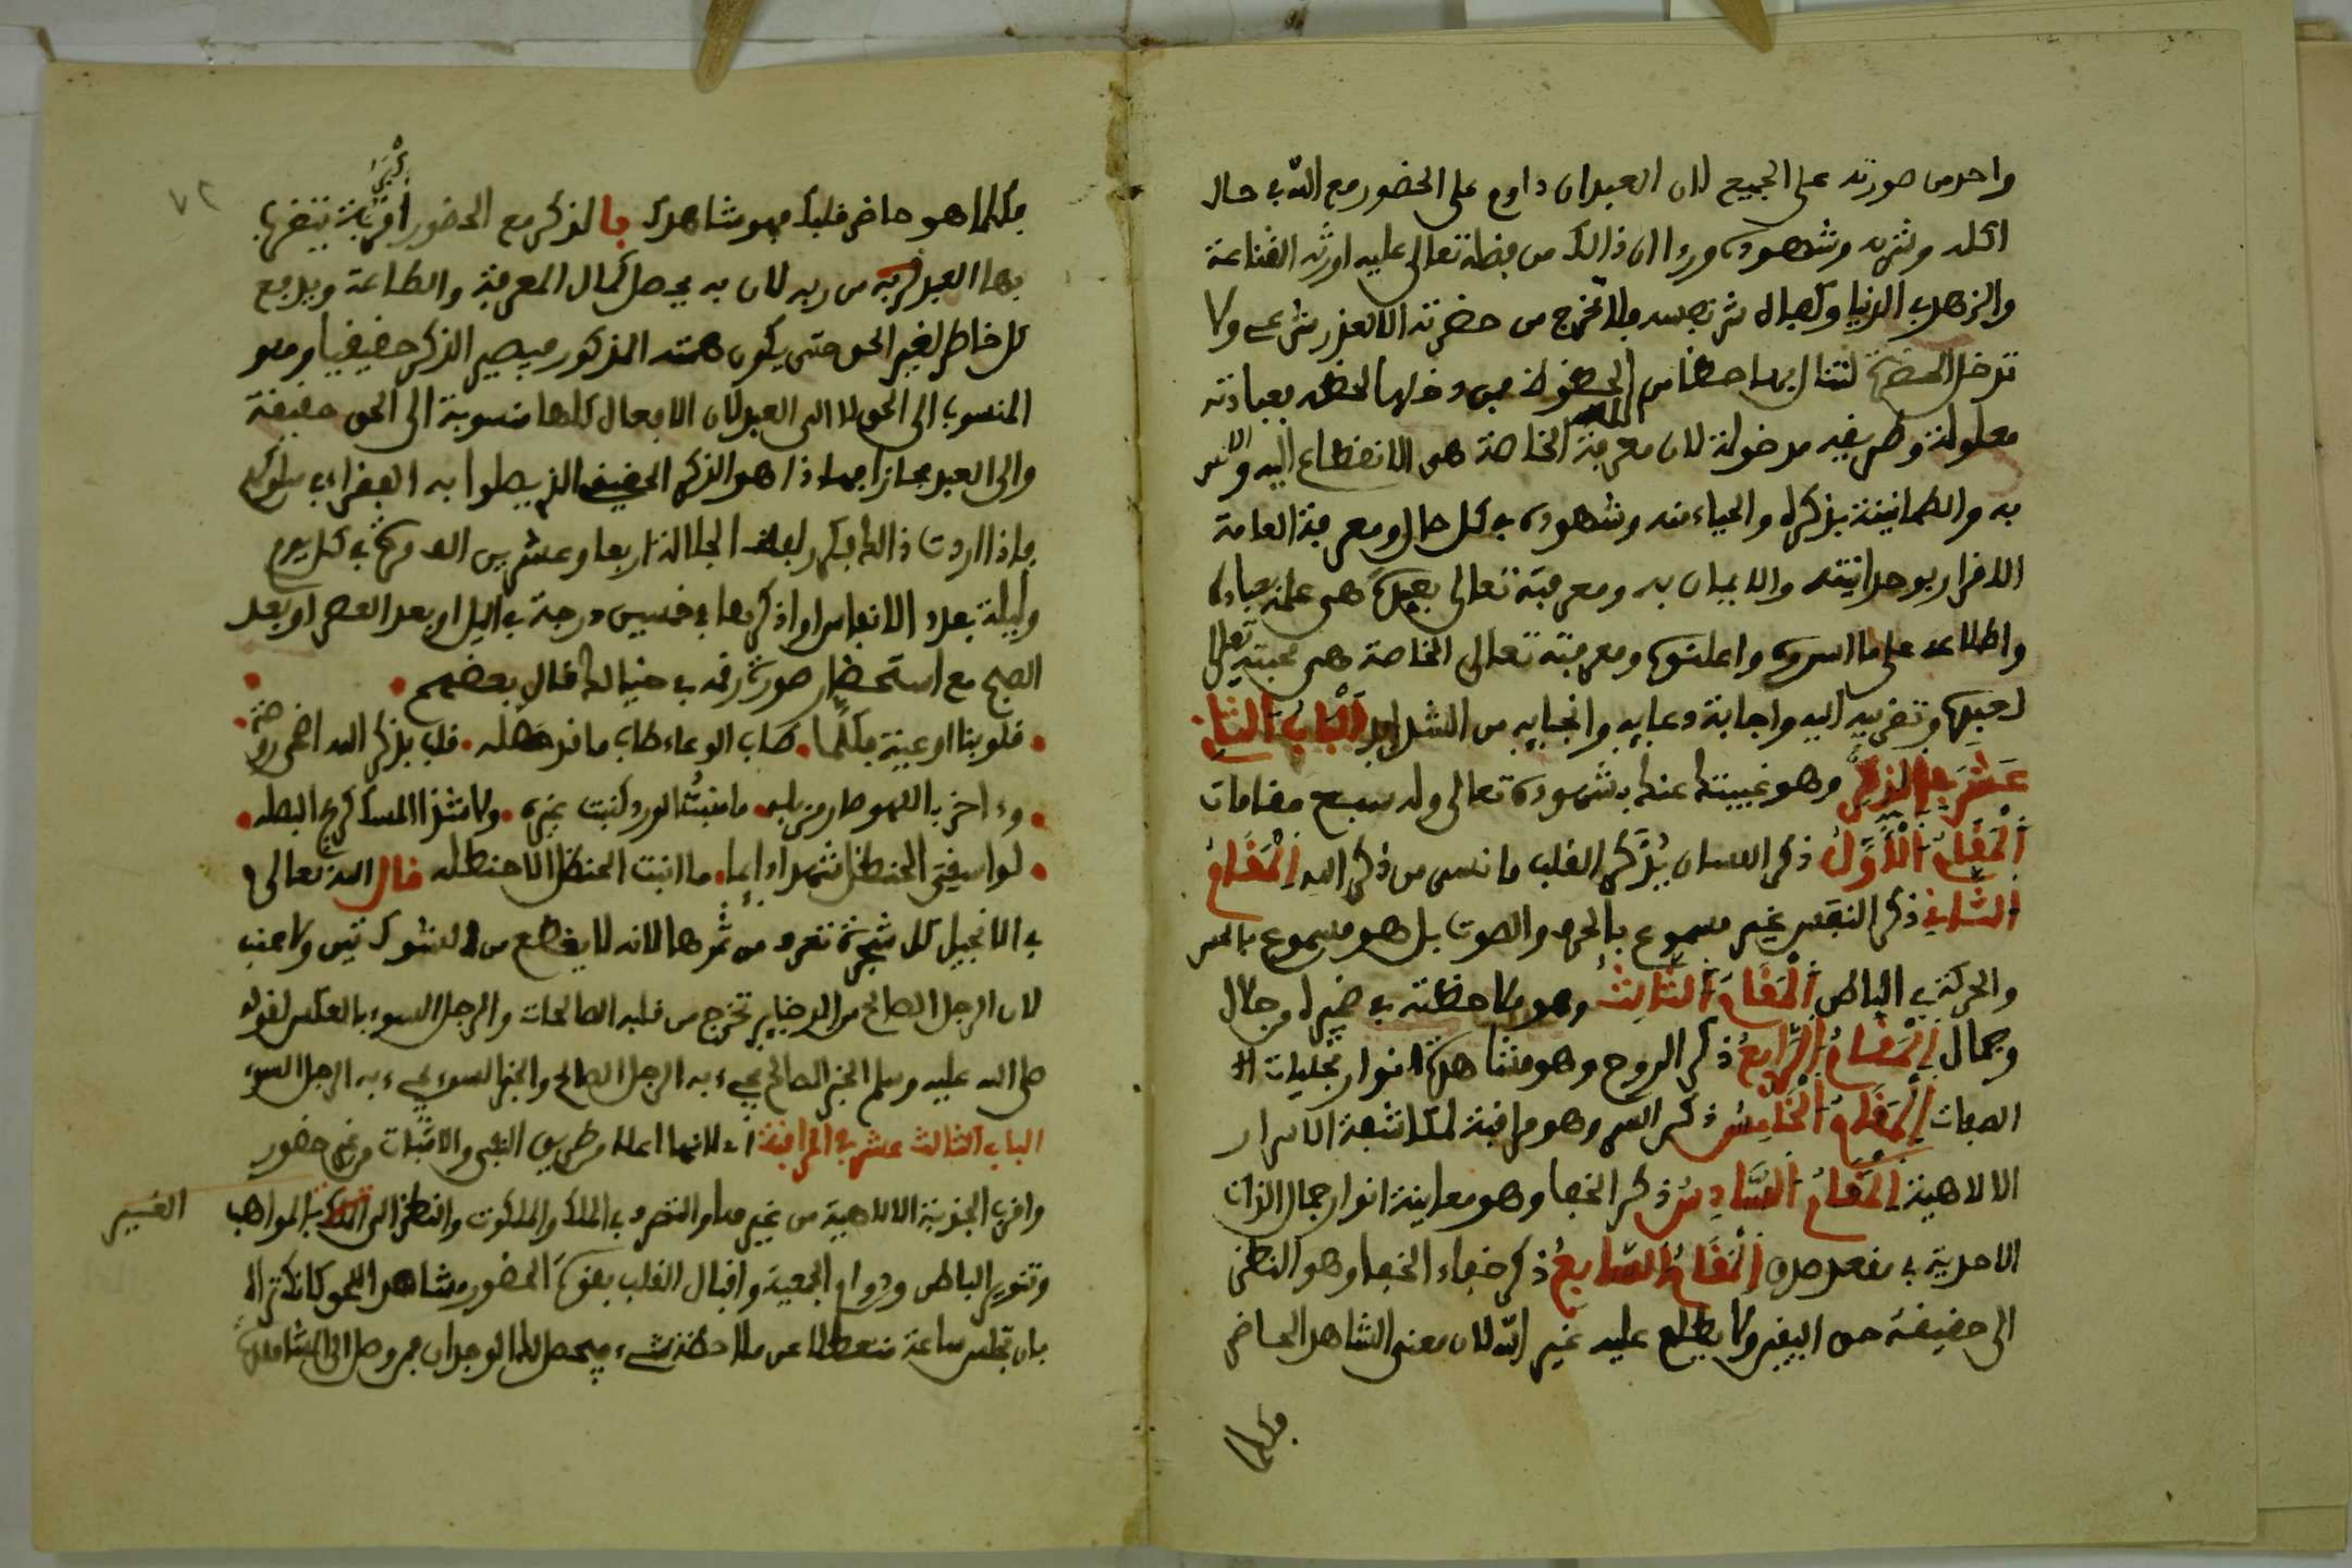 واحد من صورته على الجميع لان العبد ان داوم على الحضور مع الله في حال
اكله وشربه وشهوده وراا ان ذالك من فضله تعالى عليه اورثه القناعة
والزهد في الدنيا فلا تخرج من حضرته الا لعذر شرعي ولا
تدخل الحضرة لتنال بها حظا من الحظوظ فمن دخلها لحظ فعبادته
معلولة وطريقه مدخولة لان معرفة الخاصة هي الانقطاع اليه والانس
به والطمانينة بذكره والحياء منه وشهوده في كل حال ومعرفة العامة
الاقرار بوحدانيته والايمان به ومعرفته تعالى بعبده هي علمه بعباده
واطلاعه على ما اسروه واعلنوه ومعرفته تعالى الخاصة هي محبته تعلى
لعبده وتقريبه اليه واجابة دعايه وانجايه من الشدايد اَلْبَابُ الثاني
عَشَرَ في الذكر وهو غيبتك عنك بشهوده تعالى وله سبع مقامات
اَلْمَقَامُ اَلْأَوَّلُ ذكر اللسان يُذَكر القلب ما نسي من ذكر الله اِلْمَقَامُ
الثَّانِي ذكر النفس غير مسموع بالحرف والصوت بل هو مسموع بالحس
والحركة في الباطن اَلْمَقَامُ الثَّالِثُ وهو ملاحظته في ضميره وجلال
وجمال اِلْمَقَامُ الرَّابِعُ ذكر الروح وهو مشاهدة انوار تجليات
الصفات اِلْمَقَامُ الْخَامِسُ ذكر السر وهو مراقبة لمكاشفة الاسرار
الالاهية اِلْمَقَامُ السَّادِسُ ذكر الخفا وهو معاينة انوار جمال الذات
الاحدية في مقعد صدق اِلْمَقَامُ السَّابِعُ ذكر خفاء الخفاء وهو النظر
الى حقيقة حق اليقين ولا يطلع عليه غير الله لان معنى الشاهد الحاضر
فكلما
٧٢
فكلما هو حاضر قلبك فهو شاهدك فالذكر مع الحضور اكبر قربة يتقرب
بها العبد من ربه لان به يحصل كمال المعرفة والطاعة ويدفع
كل خاطر لغير الحق حتى يكون همته المذكور فيصير الذكر حقيقيا وهو
المنسوب الى الحق لا الى العبد لان الافعال كلها منسوبة الى الحق حقيقة
والى العبد مجازا فهاذا هو الذكر الحقيقي الذي يصلوا به الفقراء في سلوكهم
فاذا اردت ذالك فكرر لفظ الجلالة اربعا وعشرين الف مرة في كل يوم
وليلة بعدد الانفاس او اذكرها في خمسين درجة في اليل او بعد العصر او بعد
الصبح مع استحضار صورة رقمه في خيالك قال بعضهم
قلوبنا اوعية فكلما طاب الوعاء طاب ما قد حصله قلب بذكر الله اضحى روضة
وءاخر باللهو صار مزبله ما منبت الورد كنبت غيره ولا شذا المسك كريح البصله
لو اسقي الحنظل شهدا دايما ما انبت الحنظل الا حنظله قال الله تعالى
في الانجيل كل شجرة تعرف من ثمرها لانه لا يقطع من الشوك تين ولا عنب
لان الرجل الصالح من الدخاير تخرج من قلبه الصالحات والرجل السوء بالعكس لقوله
صلى الله عليه وسلم الخبر الصالح يجيء به الرجل الصالح والخبر السوء يجيء به الرجل السوء
الباب الثالث عشر في المراقبة لانها اعلا من طريق النفي والاثبات من غير حضور
واقرب للجذبة الالاهية من غيرها والتصرف في الملك والملكوت والنظر الى المواهب
الغير
وتنوير الباطن ودوام الجمعية واقبال القلب بقوة الحضور ومشاهدة الحق كانك تراه
بان تجلس ساعة منعطلا عن ملاحظة شيء فيحصل لك الوجدان فمن وصل الى المشاهدة